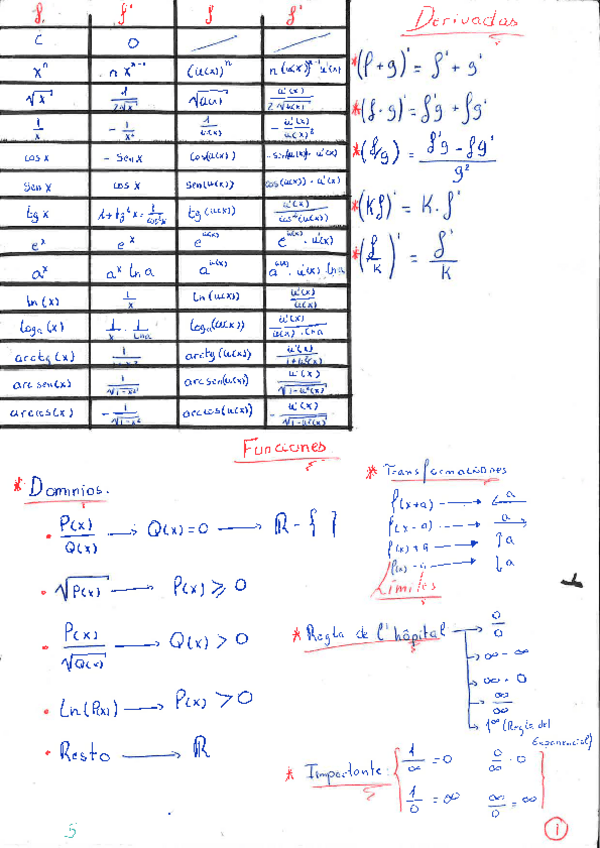 f. f' f f'
C 0
xⁿ n xⁿ⁻¹ (u(x))ⁿ n(u(x))ⁿ⁻¹·u'(x)
√x 1/2√x √u(x) u'(x)/2√u(x)
1/x -1/x² 1/u(x) -u'(x)/u(x)²
cos x - sen x cos(u(x)) -sen(u(x))·u'(x)
sen x cos x sen(u(x)) cos(u(x))·u'(x)
tg x 1+tg²x=1/cos²x tg(u(x)) u'(x)/cos²(u(x))
eˣ eˣ e^u(x) e^u(x)·u'(x)
aˣ aˣ Ln a a^u(x) a^u(x)·u'(x)·Ln a
ln(x) 1/x Ln(u(x)) u'(x)/u(x)
logₐ(x) 1/x · 1/Lna logₐ(u(x)) u'(x)/u(x)·Lna
arctg(x) arctg(u(x)) u'(x)/1+u²(x)
arcsen(x) 1/√1-x² arcsen(u(x)) u'(x)/√1-u²(x)
arccos(x) -1/√1-x² arccos(u(x)) -u'(x)/√1-u²(x)
Derivadas
*(f+g)' = f' + g'
*(f·g)' = f'g + fg'
*(f/g) = f'g - fg'/g²
*(Kf)' = K·f'
*(f/k)' = f'/k
Funciones
* Dominios.
• P(x)/Q(x) → Q(x)=0 → R - { }
• √P(x) → P(x) ⩾ 0
• P(x)/√Q(x) → Q(x) > 0
• Ln(P(x)) → P(x) > 0
• Resto → R
* Transformaciones
f(x+a) → ← a
f(x-a) → a →
f(x)+a → ↑a
f(x)-a → ↓a
Límites
* Regla de l'hôpital → 0/0
→ ∞-∞
→ ∞·0
→ ∞/∞
→ 1^∞ (Regla del
Exponencial)
* Importante: { 1/∞ = 0 0/∞ · 0
1/0 = ∞ ∞/0 = ∞ }
5
1